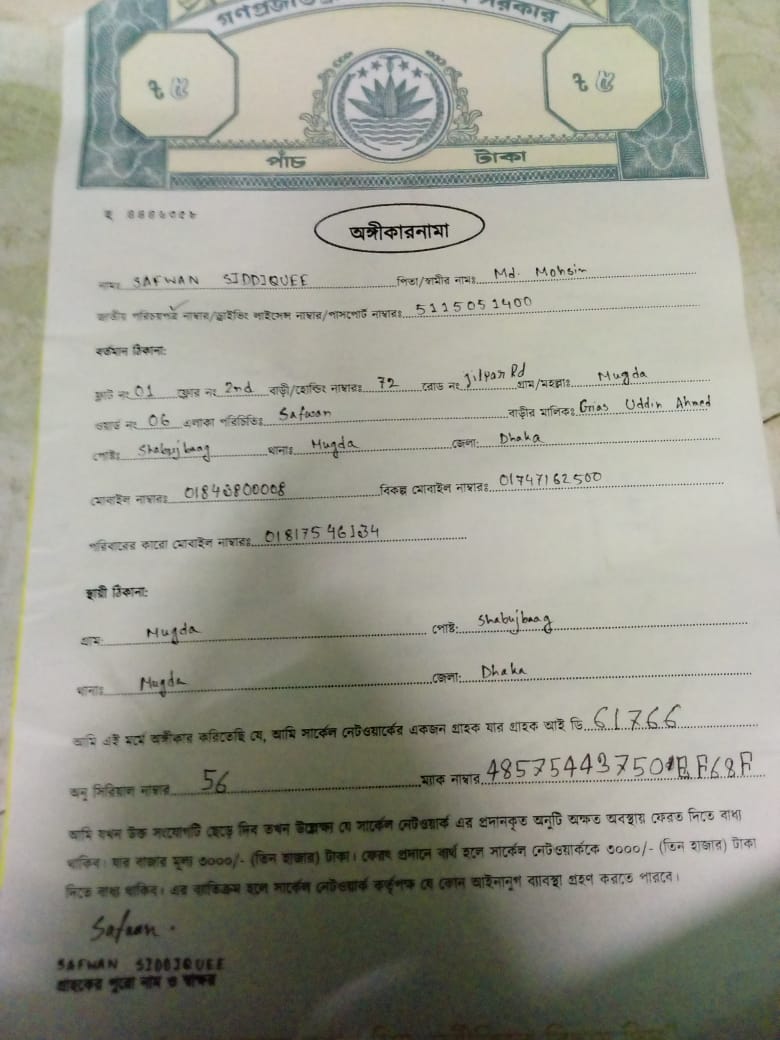 গণপ্রজাতন্ত্রী সরকার
৳ ৫ ৳ ৫
পাঁচ টাকা
অঙ্গীকারনামা
নামঃ SAFWAN SIDDIQUEE পিতা/স্বামীর নামঃ Md. Mohsin
জাতীয় পরিচয়পত্র নাম্বার/ড্রাইভিং লাইসেন্স নাম্বার/পাসপোর্ট নাম্বারঃ 5115051400
বর্তমান ঠিকানা:
ফ্লাট নং 01 ফ্লোর নং 2nd বাড়ী/হোল্ডিং নাম্বারঃ 72 রোড নং Jilpar Rd গ্রাম/মহল্লাঃ Mugda
ওয়ার্ড নং 06 এলাকা পরিচিতিঃ Safwan বাড়ীর মালিকঃ Grias Uddin Ahmed
পোষ্টঃ Shabujbaag থানাঃ Mugda জেলা: Dhaka
মোবাইল নাম্বারঃ 01843800008 বিকল্প মোবাইল নাম্বারঃ 01747162500
পরিবারের কারো মোবাইল নাম্বারঃ 01817546134
স্থায়ী ঠিকানা:
গ্রাম: Mugda পোষ্ট: Shabujbaag
থানাঃ Mugda জেলা: Dhaka
আমি এই মর্মে অঙ্গীকার করিতেছি যে, আমি সার্কেল নেটওয়ার্কের একজন গ্রাহক যার গ্রাহক আই ডি 61766
অনু সিরিয়াল নাম্বার 56 ম্যাক নাম্বার
আমি যখন উক্ত সংযোগটি ছেড়ে দিব তখন উল্লেখ্য যে সার্কেল নেটওয়ার্ক এর প্রদানকৃত অনুটি অক্ষত অবস্থায় ফেরত দিতে বাধ্য
থাকিব। যার বাজার মূল্য ৩০০০/- (তিন হাজার) টাকা। ফেরৎ প্রদানে ব্যর্থ হলে সার্কেল নেটওয়ার্ককে ৩০০০/- (তিন হাজার) টাকা
দিতে বাধ্য থাকিব। এর ব্যতিক্রম হলে সার্কেল নেটওয়ার্ক কর্তৃপক্ষ যে কোন আইনানুগ ব্যবস্থা গ্রহণ করতে পারবে।
Safwan.
SAFWAN SIDDIQUEE
গ্রাহকের পুরো নাম ও স্বাক্ষর